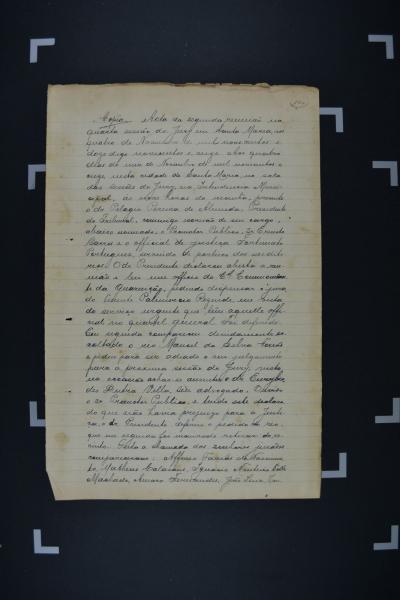 Copia. Acta da segunda reunião na
quarta sessão do Jury em Santa Maria, aos
quatro de Novembro de mil novecentos e
doze digo novecentos e onze. Aos quatro
dias do mez de Novembro de mil novecentos e
onze nesta cidade de Santa Maria, na sala
das sessões do Jury, na Intendencia Muni-
cipal, ás nove horas da manhã, presente
o dr. Pelagio Pereira de Almeida, Presidente
do Tribunal, commigo escrivão de seu cargo,
abaixo nomeado, o Promotor Publico, dr. Ernesto
Barros e o official de justiça Fortunato
Portuguez, servindo de porteiro dos audito-
rios. O dr. Presidente declarou aberta a reu-
nião e leu um officio do Cel. Commandante
da Guarnição, pedindo dispensar o jurado
Tenente Rezende, em vista
do serviço urgente que tem aquelle offi-
cial no quartel general. Foi deferido.
Em seguida compareceu devidamente es-
coltado o reo Manoel da Silva
e pediu para ser adiado o seu julgamento
para a proxima sessão do Jury, visto
na occasião achar-se ausente o dr.
Dutra Villa, seu advogado. Ouvido
o dr. Promotor Publico, e tendo este declara-
do que não havia prejuizo para a Justi-
ça, o dr. Presidente deferiu o pedido do reo,
que em seguida foi mandado retirar do re-
cinto. Feita a chamada dos jurados
compareceram: Affonso do Nascimen-
to, Matheus, Ignacio
Machado, Amaro, João Lima